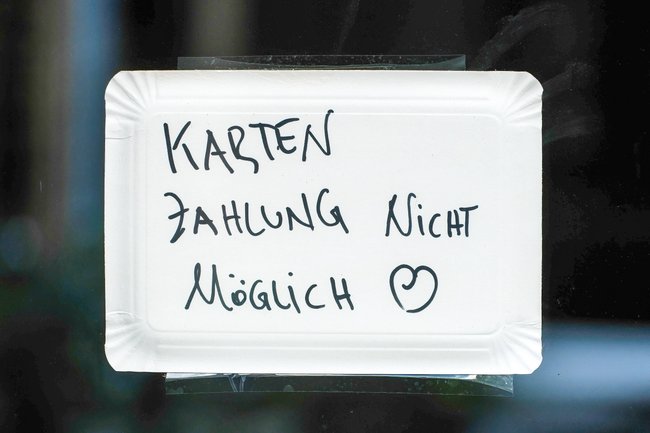 KARTEN
ZAHLUNG NICHT
MÖGLICH ♡